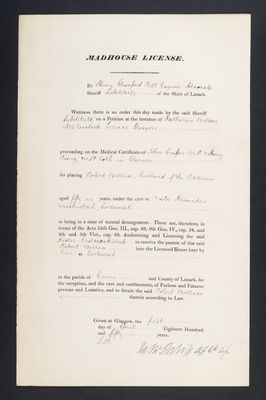 MADHOUSE LICENSE.
By Henry Glassford Bell Esquire Advocate
Sheriff Substitute of the Shire of Lanark.
WHEREAS there is an order this day made by the said Sheriff
Substitute on a Petition at the instance of Katharine Wallace
Terrace Glasgow
proceeding on the Medical Certificate of John M.D. & Henry
M.D. both in Glasgow
for placing Robert Wallace, husband of the Petitioner
aged fifty years, under the care of Alexander
Mackintosh, Gartnavel
as being in a state of mental derangement: These are, therefore, in
terms of the Acts 55th Geo. III., cap. 69, 9th Geo. IV., cap. 34, and
4th and 5th Vict., cap. 60, Authorising and Licensing the said
Mackintosh to receive the person of the said
Robert Wallace into the Licensed House kept by
him at Gartnavel
in the parish of Govan and County of Lanark, for
the reception, and the care and confinement, of Furious and Fatuous
persons and Lunatics, and to detain the said Robert Wallace
therein according to Law.
Given at Glasgow, the first
day of April Eighteen Hundred
and fifty years.